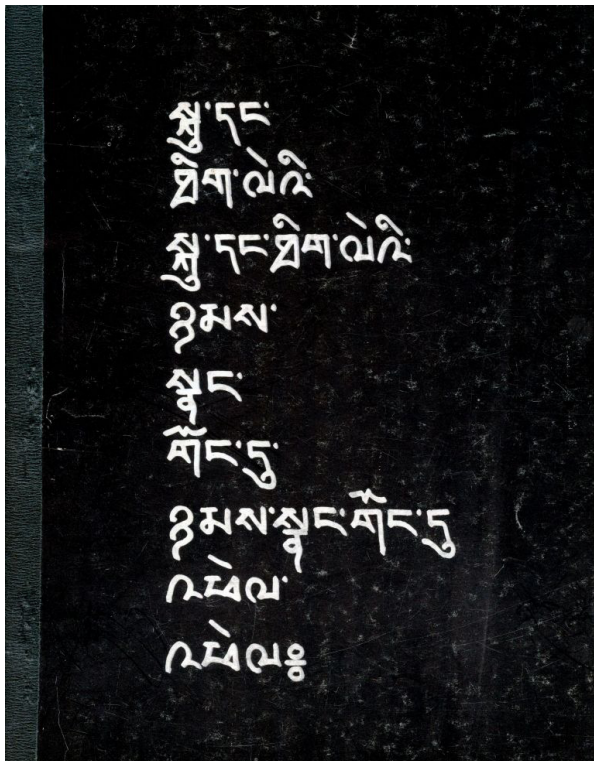 སྐུ་དང་
ཐིག་ལེའི་
སྐུ་དང་ཐིག་ལེའི་
ཉམས་
སྣང་
གོང་དུ་
ཉམས་སྣང་གོང་དུ
འཕེལ་
འཕེལ༔